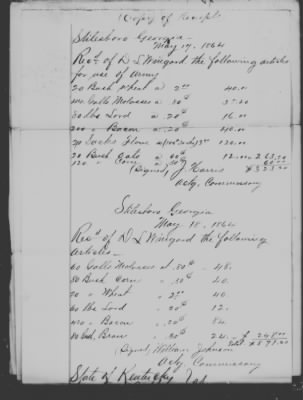 (Copy of Receipt
Stilesboro Georgia
May 17. 1864
Recd of D L Wingard the following articles
for use of army
20 Bush Wheat a 2 00 40.00
Galls Molasses a 80c
80 lbs Lard a 20c 16.00
200 " Bacon a 20c 40.00
20 Sacks Flour 120.00
20 Bush Oats a 60c 12.00
120 " Corn a 50c 60.00
(Signed) J. Harris
Actg. Commissary
Stilesboro Georgia
May 18. 1864
Recd of D L Wingard the following
Articles
60 Galls Molasses at .80c - 48.
80 Bush Corn " .50c 40.
20 " Wheat " 2 00 40.
60 lbs Lard " .20c 12.
420 " Bacon " .20c 84.
Bran " .30c 24. - $ 248.00
(Signed) William Johnson
Actg. Commissary
State of Kentucky